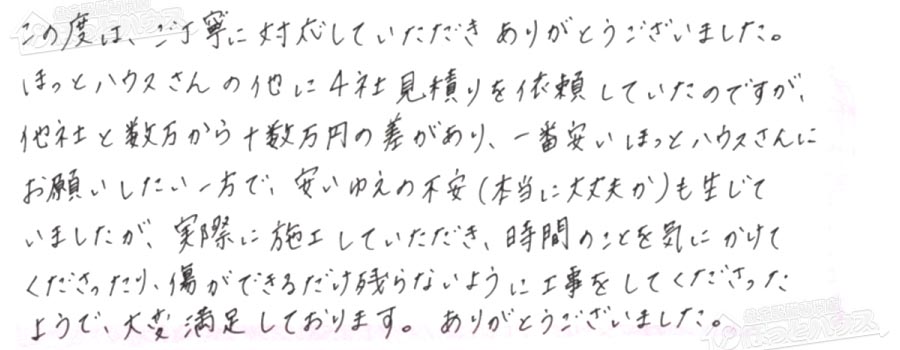 この度は、ご丁寧に対応していただきありがとうございました。
ほっとハウスさんの他に4社見積りを依頼していたのですが、
他社と数万から十数万円の差があり、一番安いほっとハウスさんに
お願いしたい一方で、安いゆえの不安(本当に大丈夫か)も生じて
いましたが、実際に施工していただき、時間のことを気にかけて
くださったり、傷ができるだけ残らないように工事をしてくださった
ようで、大変満足しております。ありがとうございました。
ほっとハウス